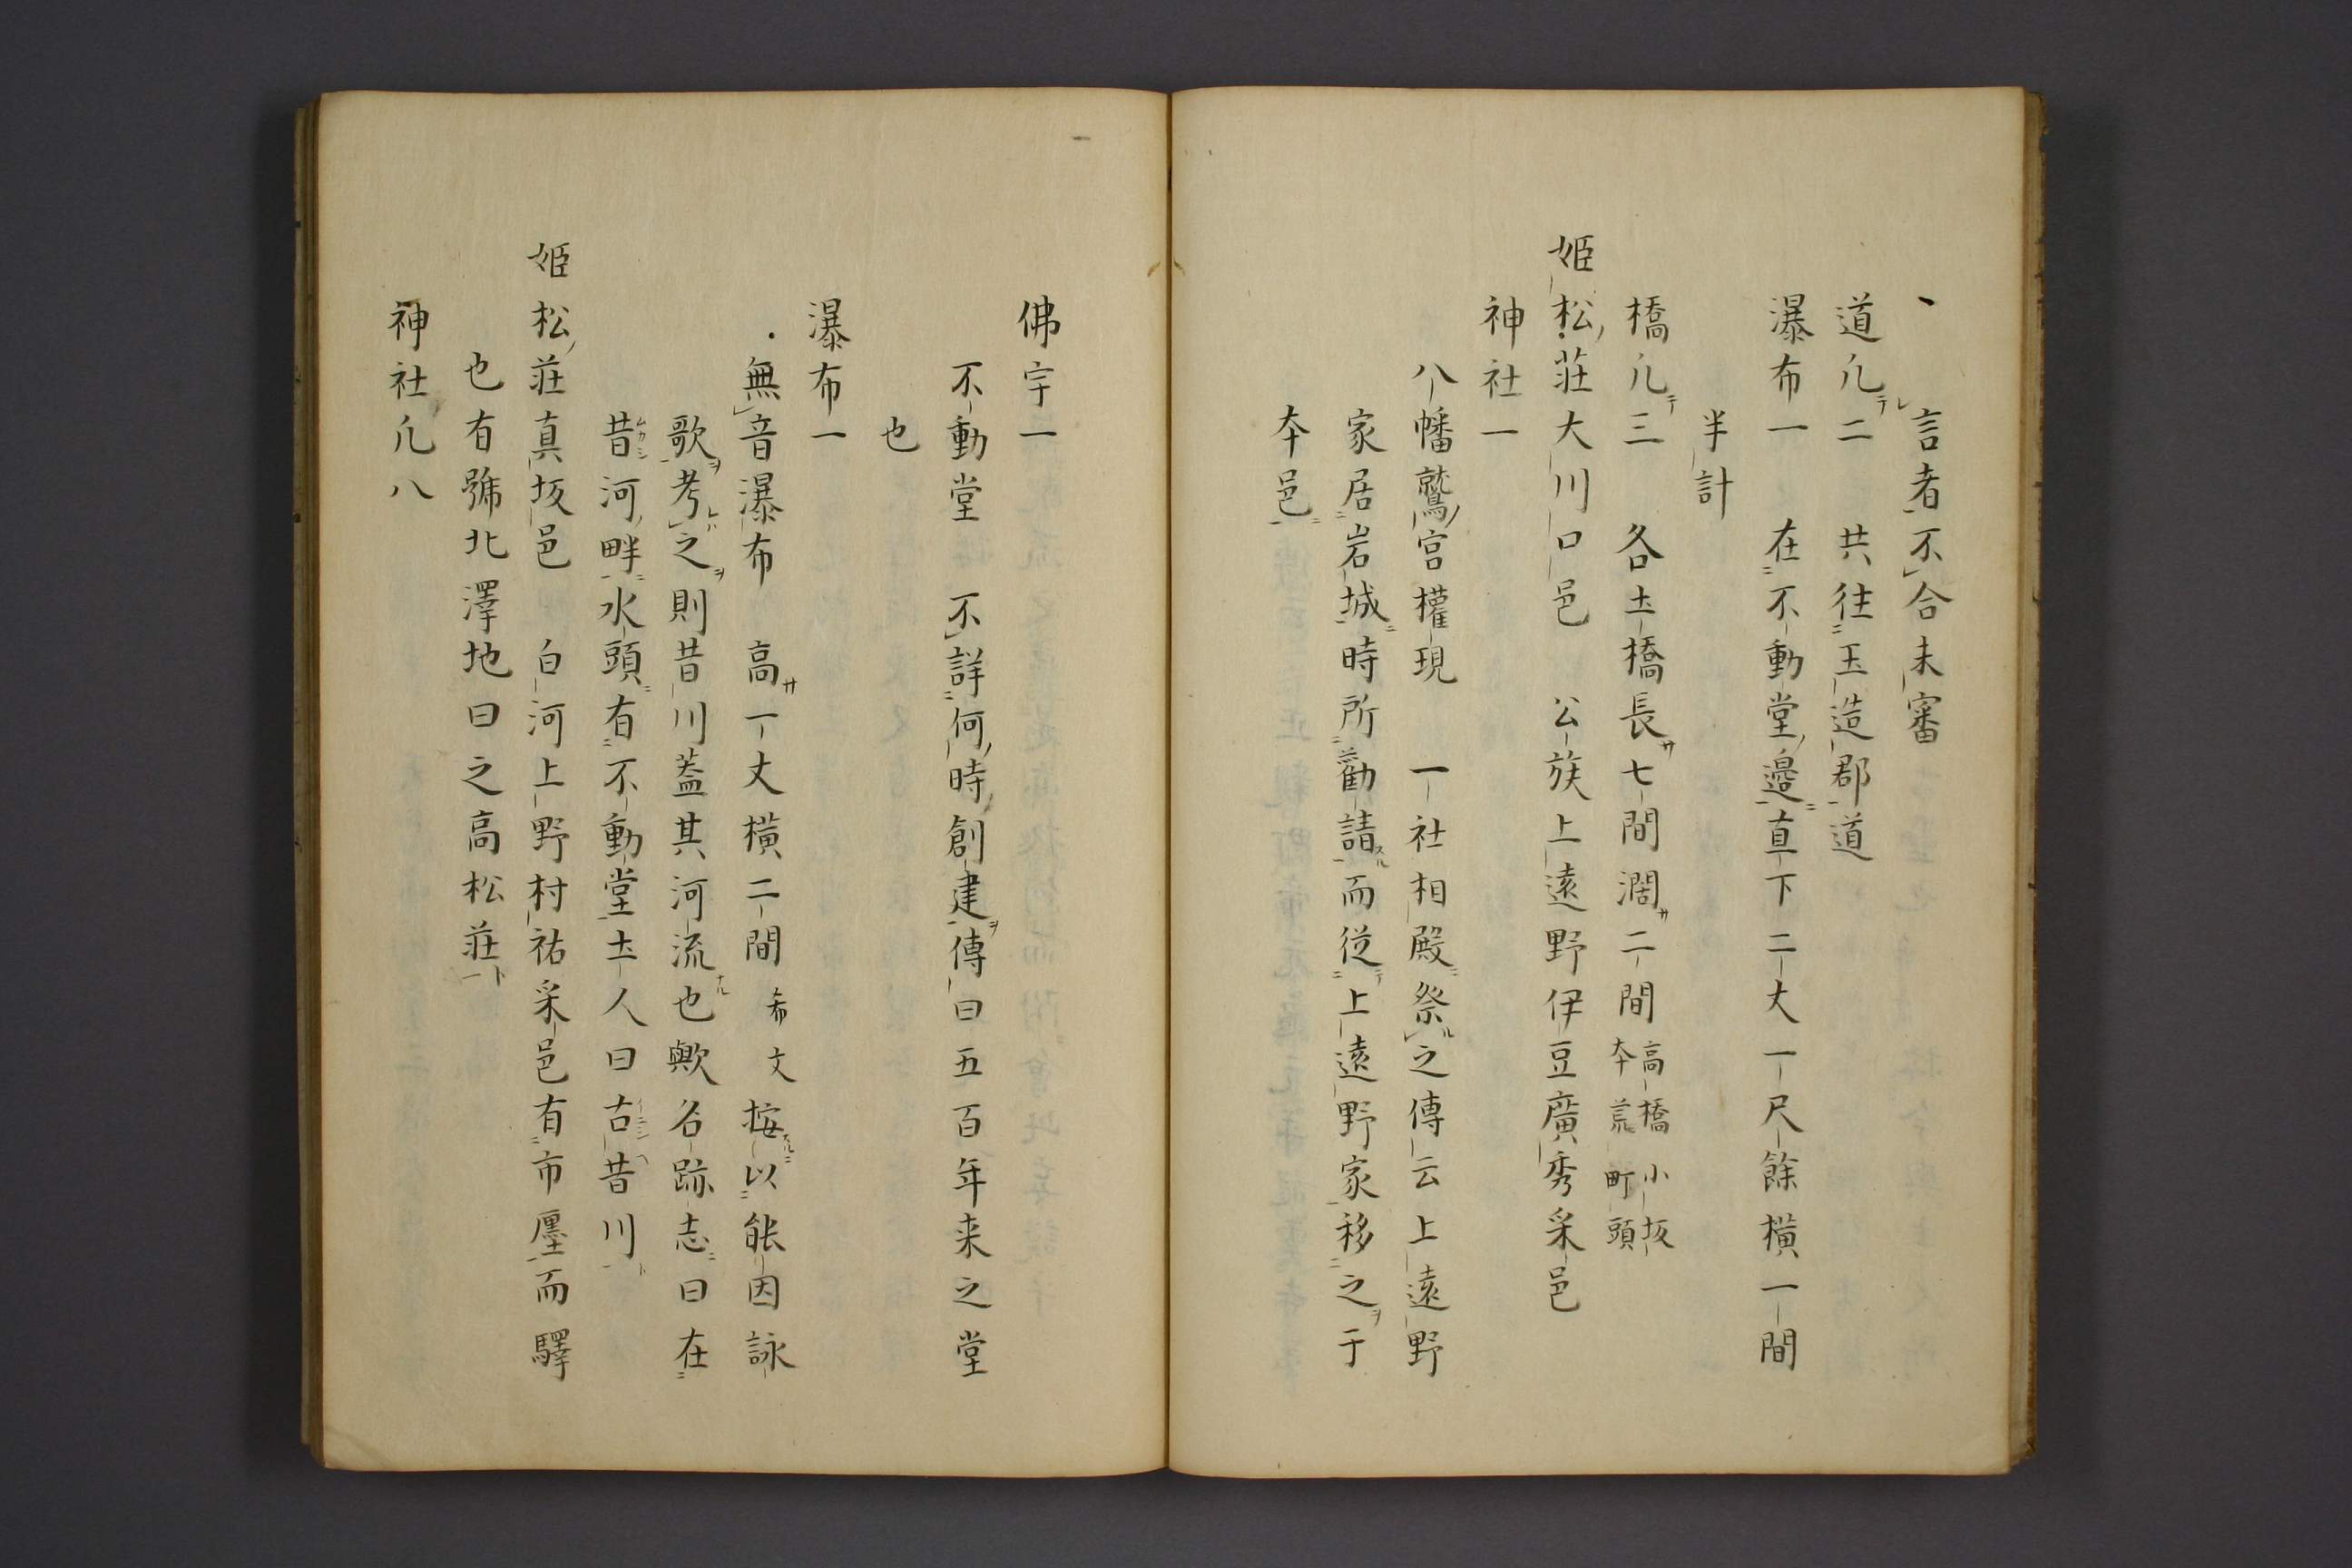 言者不合未審
道凢二　共往玉造郡道
瀑布一　在不動堂邉直下二丈一尺餘横一間
半計
橋凢三　各土橋長七間濶二間高橋小坂
夲荒町頭
姫松莊大川口邑　公族上遠野伊豆廣秀采邑
神社一
八幡鷲宮權現　一社相殿祭之傳云上遠野
家居岩城時所勸請而従上遠野家移之于
夲邑
佛宇一
不動堂　不詳何時創建傳曰五百年来之堂
也
瀑布一
無音瀑布　高一丈横二間布文按以能因詠
歌考之則昔川蓋其河流也歟名跡志曰在
昔河畔水頭有不動堂土人曰古昔川
姫松莊真坂邑　白河上野村祐采邑有市廛而驛
也有號北澤地曰之高松莊
神社凢八